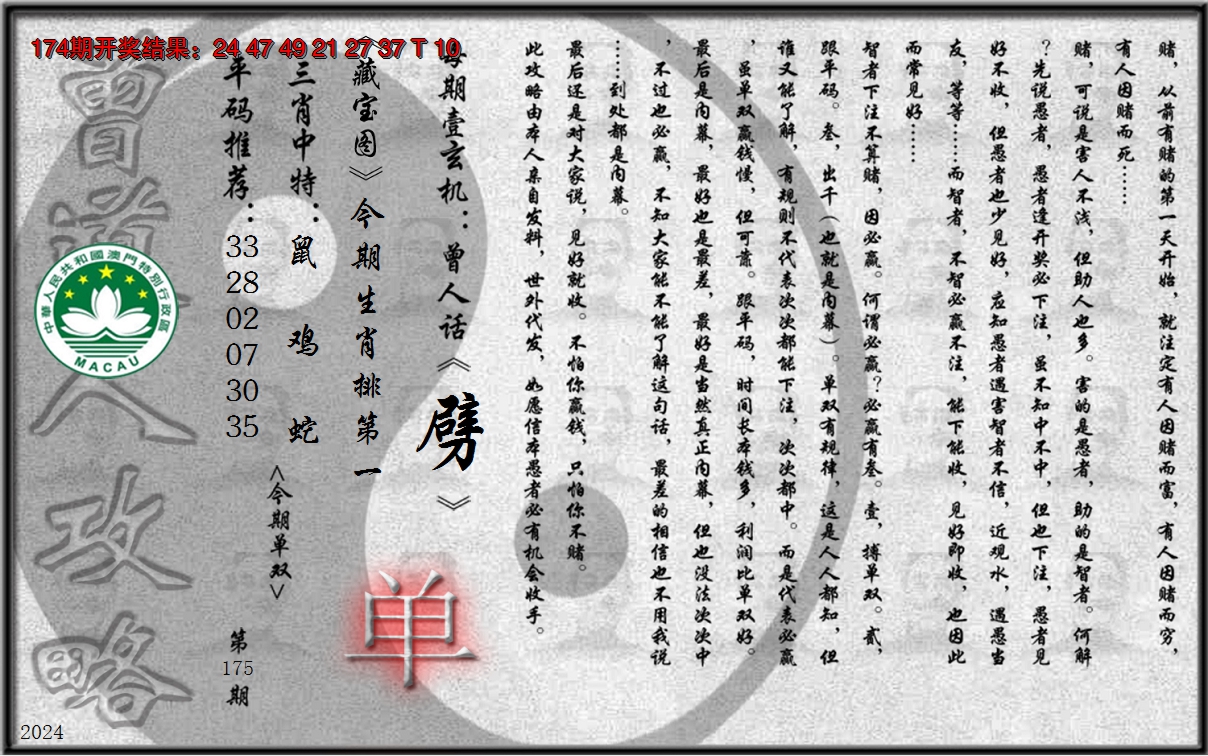 174期开奖结果：24 47 49 21 27 37 T 10
赌，从前有赌的第一天开始，就注定有人因赌而富，有人因赌而穷，
有人因赌而死……
赌，可说是害人不浅，但助人也多。害的是愚者，助的是智者。何解
？先说愚者，愚者逢开奖必下注，虽不知中不中，但也下注，愚者见
好不收，但愚者也少见好，应知愚者遇害智者不信，近观水，遇愚当
友，等等……而智者，不智必赢不注，能下能收，见好即收，也因此
而常见好……
智者下注不算赌，因必赢。何谓必赢？必赢有叁。壹，搏单双。贰，
跟平码。叁，出千（也就是内幕）。单双有规律，这是人人都知，但
谁又能了解，有规则不代表次次都能下注，次次都中。而是代表必赢
，虽单双赢钱慢，但可靠。跟平码，时间长本钱多，利润比单双好。
最后是内幕，最好也是最差，最好是当然真正内幕，但也没法次次中
，不过也必赢，不知大家能不能了解这句话，最差的相信也不用我说
……到处都是内幕。
最后还是对大家说，见好就收。不怕你赢钱，只怕你不赌。
此攻略由本人亲自发料，世外代发，如愿信本愚者必有机会收手。
每期壹玄机：曾人话《劈》
《藏宝图》今期生肖排第一
单
三肖中特：鼠 鸡 蛇
<今期单双>
平码推荐：33 28 02 07 30 35
第175期
曾道人攻略
中華人民共和國澳門特別行政區
MACAU
2024